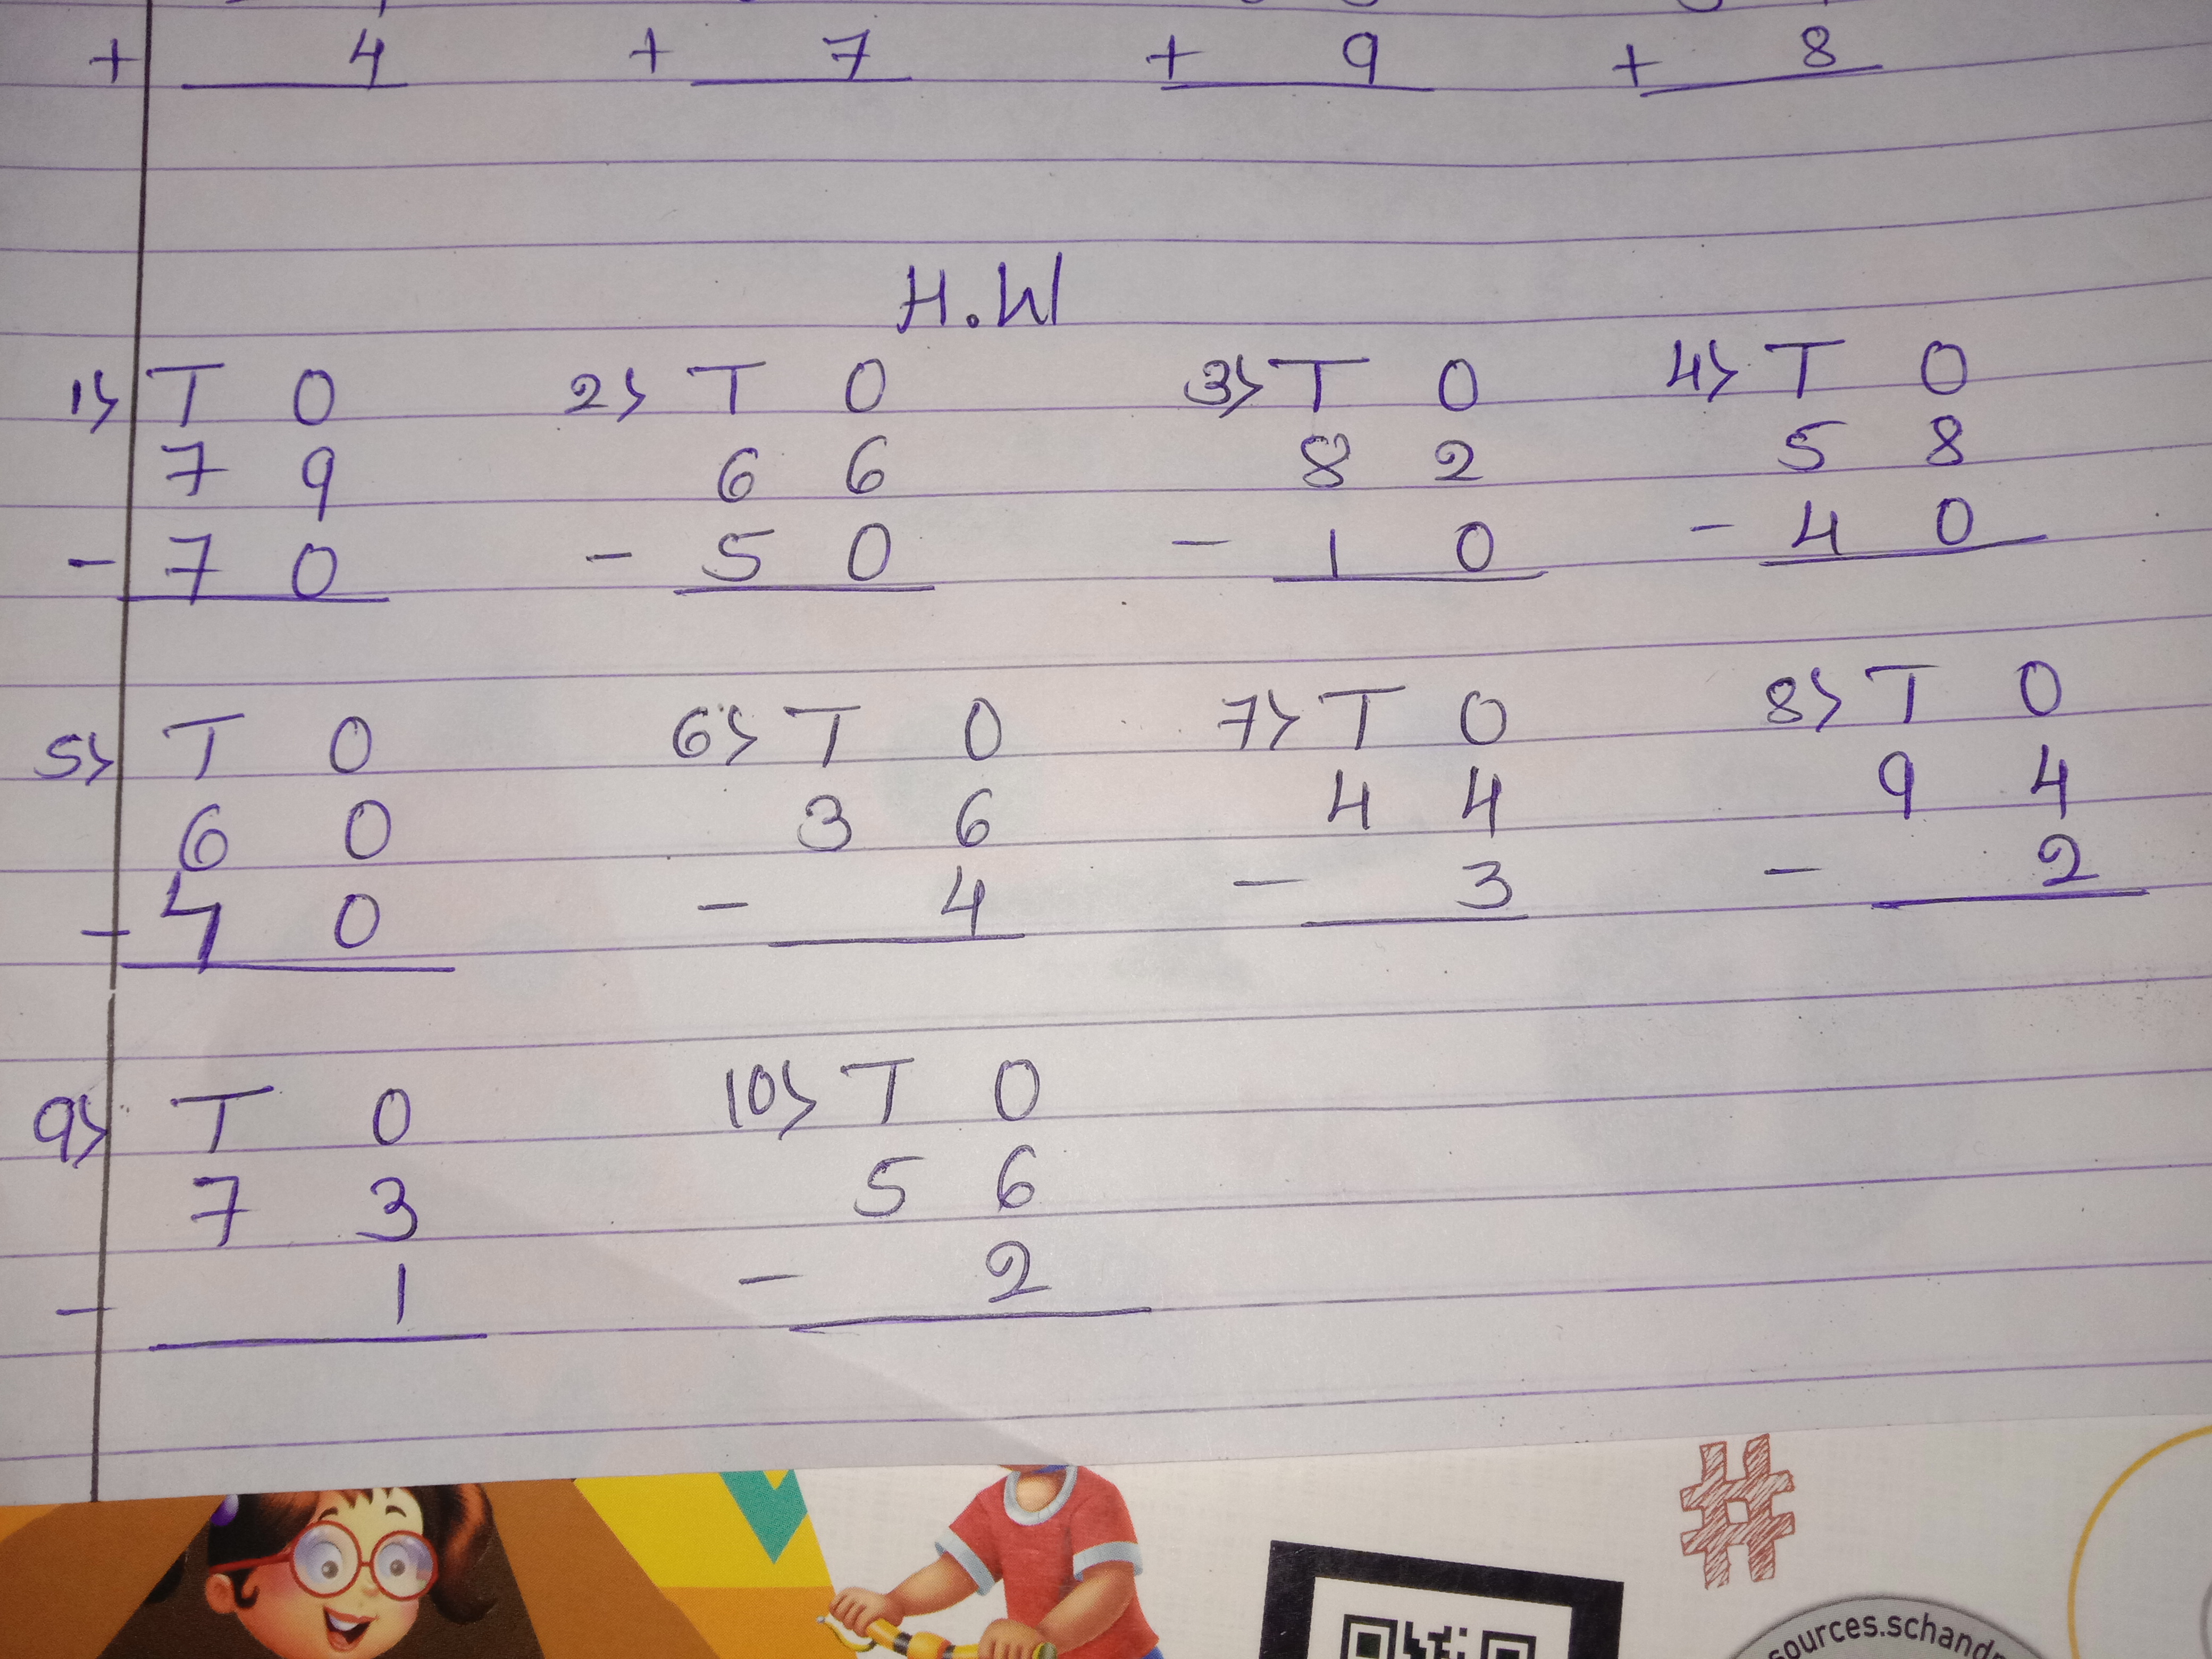 + 4 + 7 + 9 + 8
H.W
1) T O 2) T O 3) T O 4) T O
7 9 6 6 8 2 5 8
- 7 0 - 5 0 - 1 0 - 4 0
5) T O 6) T O 7) T O 8) T O
6 0 3 6 4 4 9 4
- 4 0 - 4 - 3 - 2
9) T O 10) T O
7 3 5 6
- 1 - 2
#